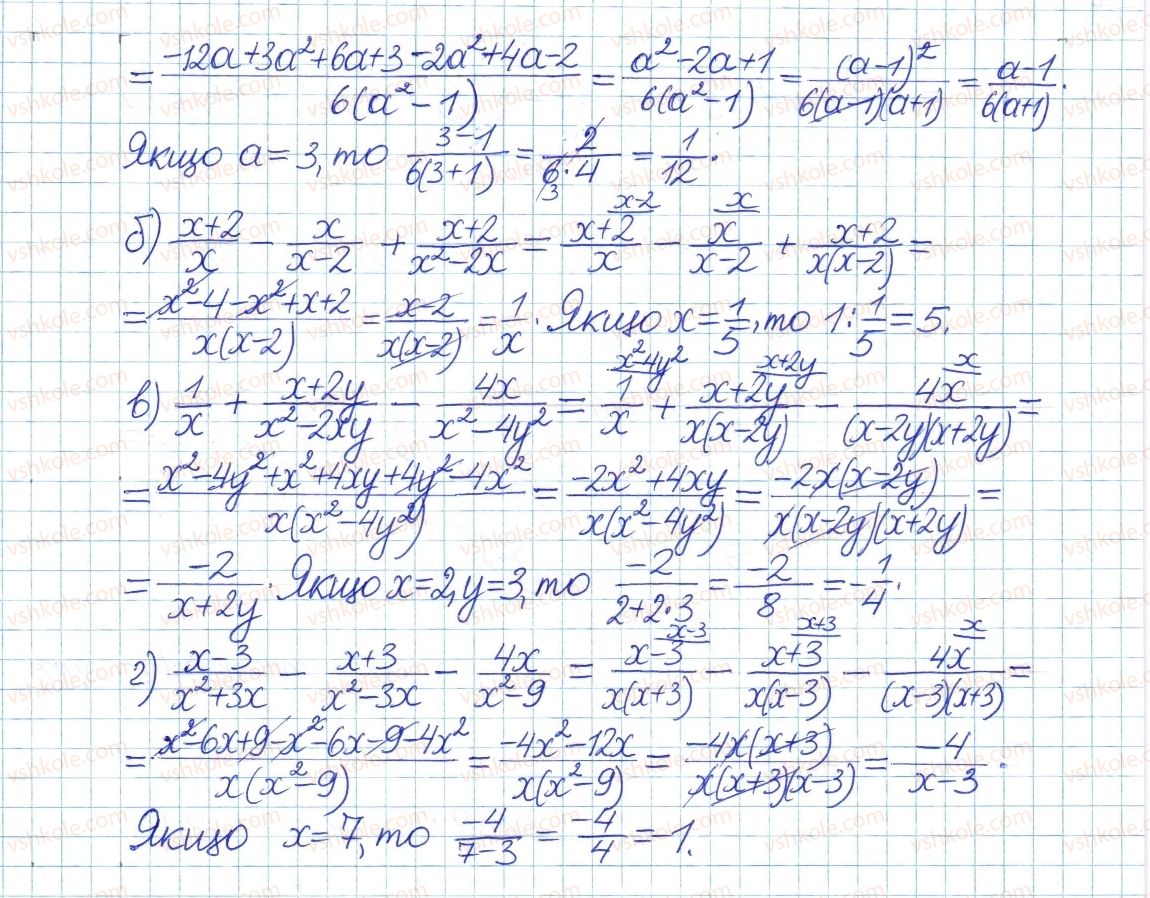 = (-12a+3a²+6a+3-2a²+4a-2)/(6(a²-1)) = (a²-2a+1)/(6(a²-1)) = (a-1)²/(6(a-1)(a+1)) = (a-1)/(6(a+1)).
Якщо a=3, то (3-1)/(6(3+1)) = 2/(6·4) = 1/12.
б) (x+2)/x - x/(x-2) + (x+2)/(x²-2x) = (x+2)/x - x/(x-2) + (x+2)/(x(x-2)) =
= (x²-4-x²+x+2)/(x(x-2)) = (x-2)/(x(x-2)) = 1/x. Якщо x=1/5, то 1:1/5=5.
в) 1/x + (x+2y)/(x²-2xy) - 4x/(x²-4y²) = 1/x + (x+2y)/(x(x-2y)) - 4x/((x-2y)(x+2y)) =
= (x²-4y²+x²+4xy+4y²-4x²)/(x(x²-4y²)) = (-2x²+4xy)/(x(x²-4y²)) = (-2x(x-2y))/(x(x-2y)(x+2y)) =
= -2/(x+2y). Якщо x=2, y=3, то -2/(2+2·3) = -2/8 = -1/4.
г) (x-3)/(x²+3x) - (x+3)/(x²-3x) - 4x/(x²-9) = (x-3)/(x(x+3)) - (x+3)/(x(x-3)) - 4x/((x-3)(x+3)) =
= (x²-6x+9-x²-6x-9-4x²)/(x(x²-9)) = (-4x²-12x)/(x(x²-9)) = (-4x(x+3))/(x(x+3)(x-3)) = -4/(x-3).
Якщо x=7, то -4/(7-3) = -4/4 = -1.